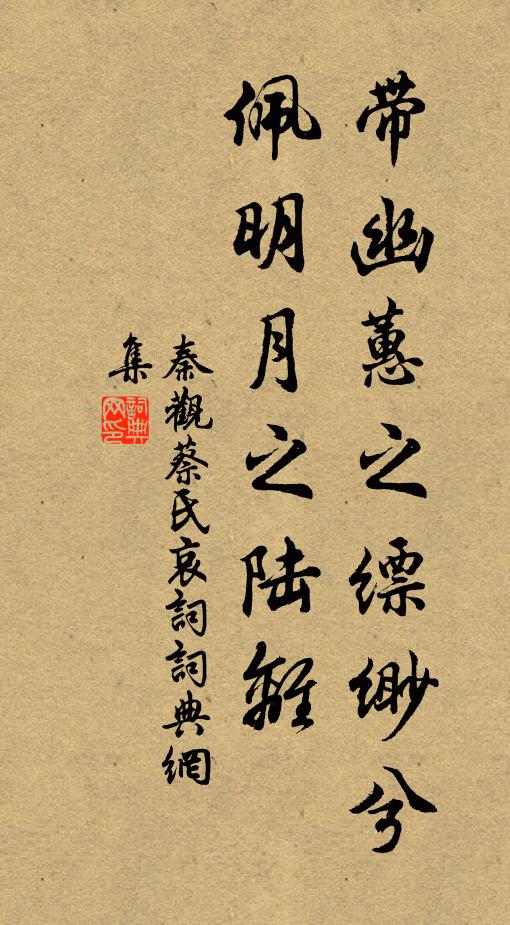 带幽蕙之缥缈兮
佩明月之陆離
秦觀蔡氏哀詞詞典網
集
詞典
网印